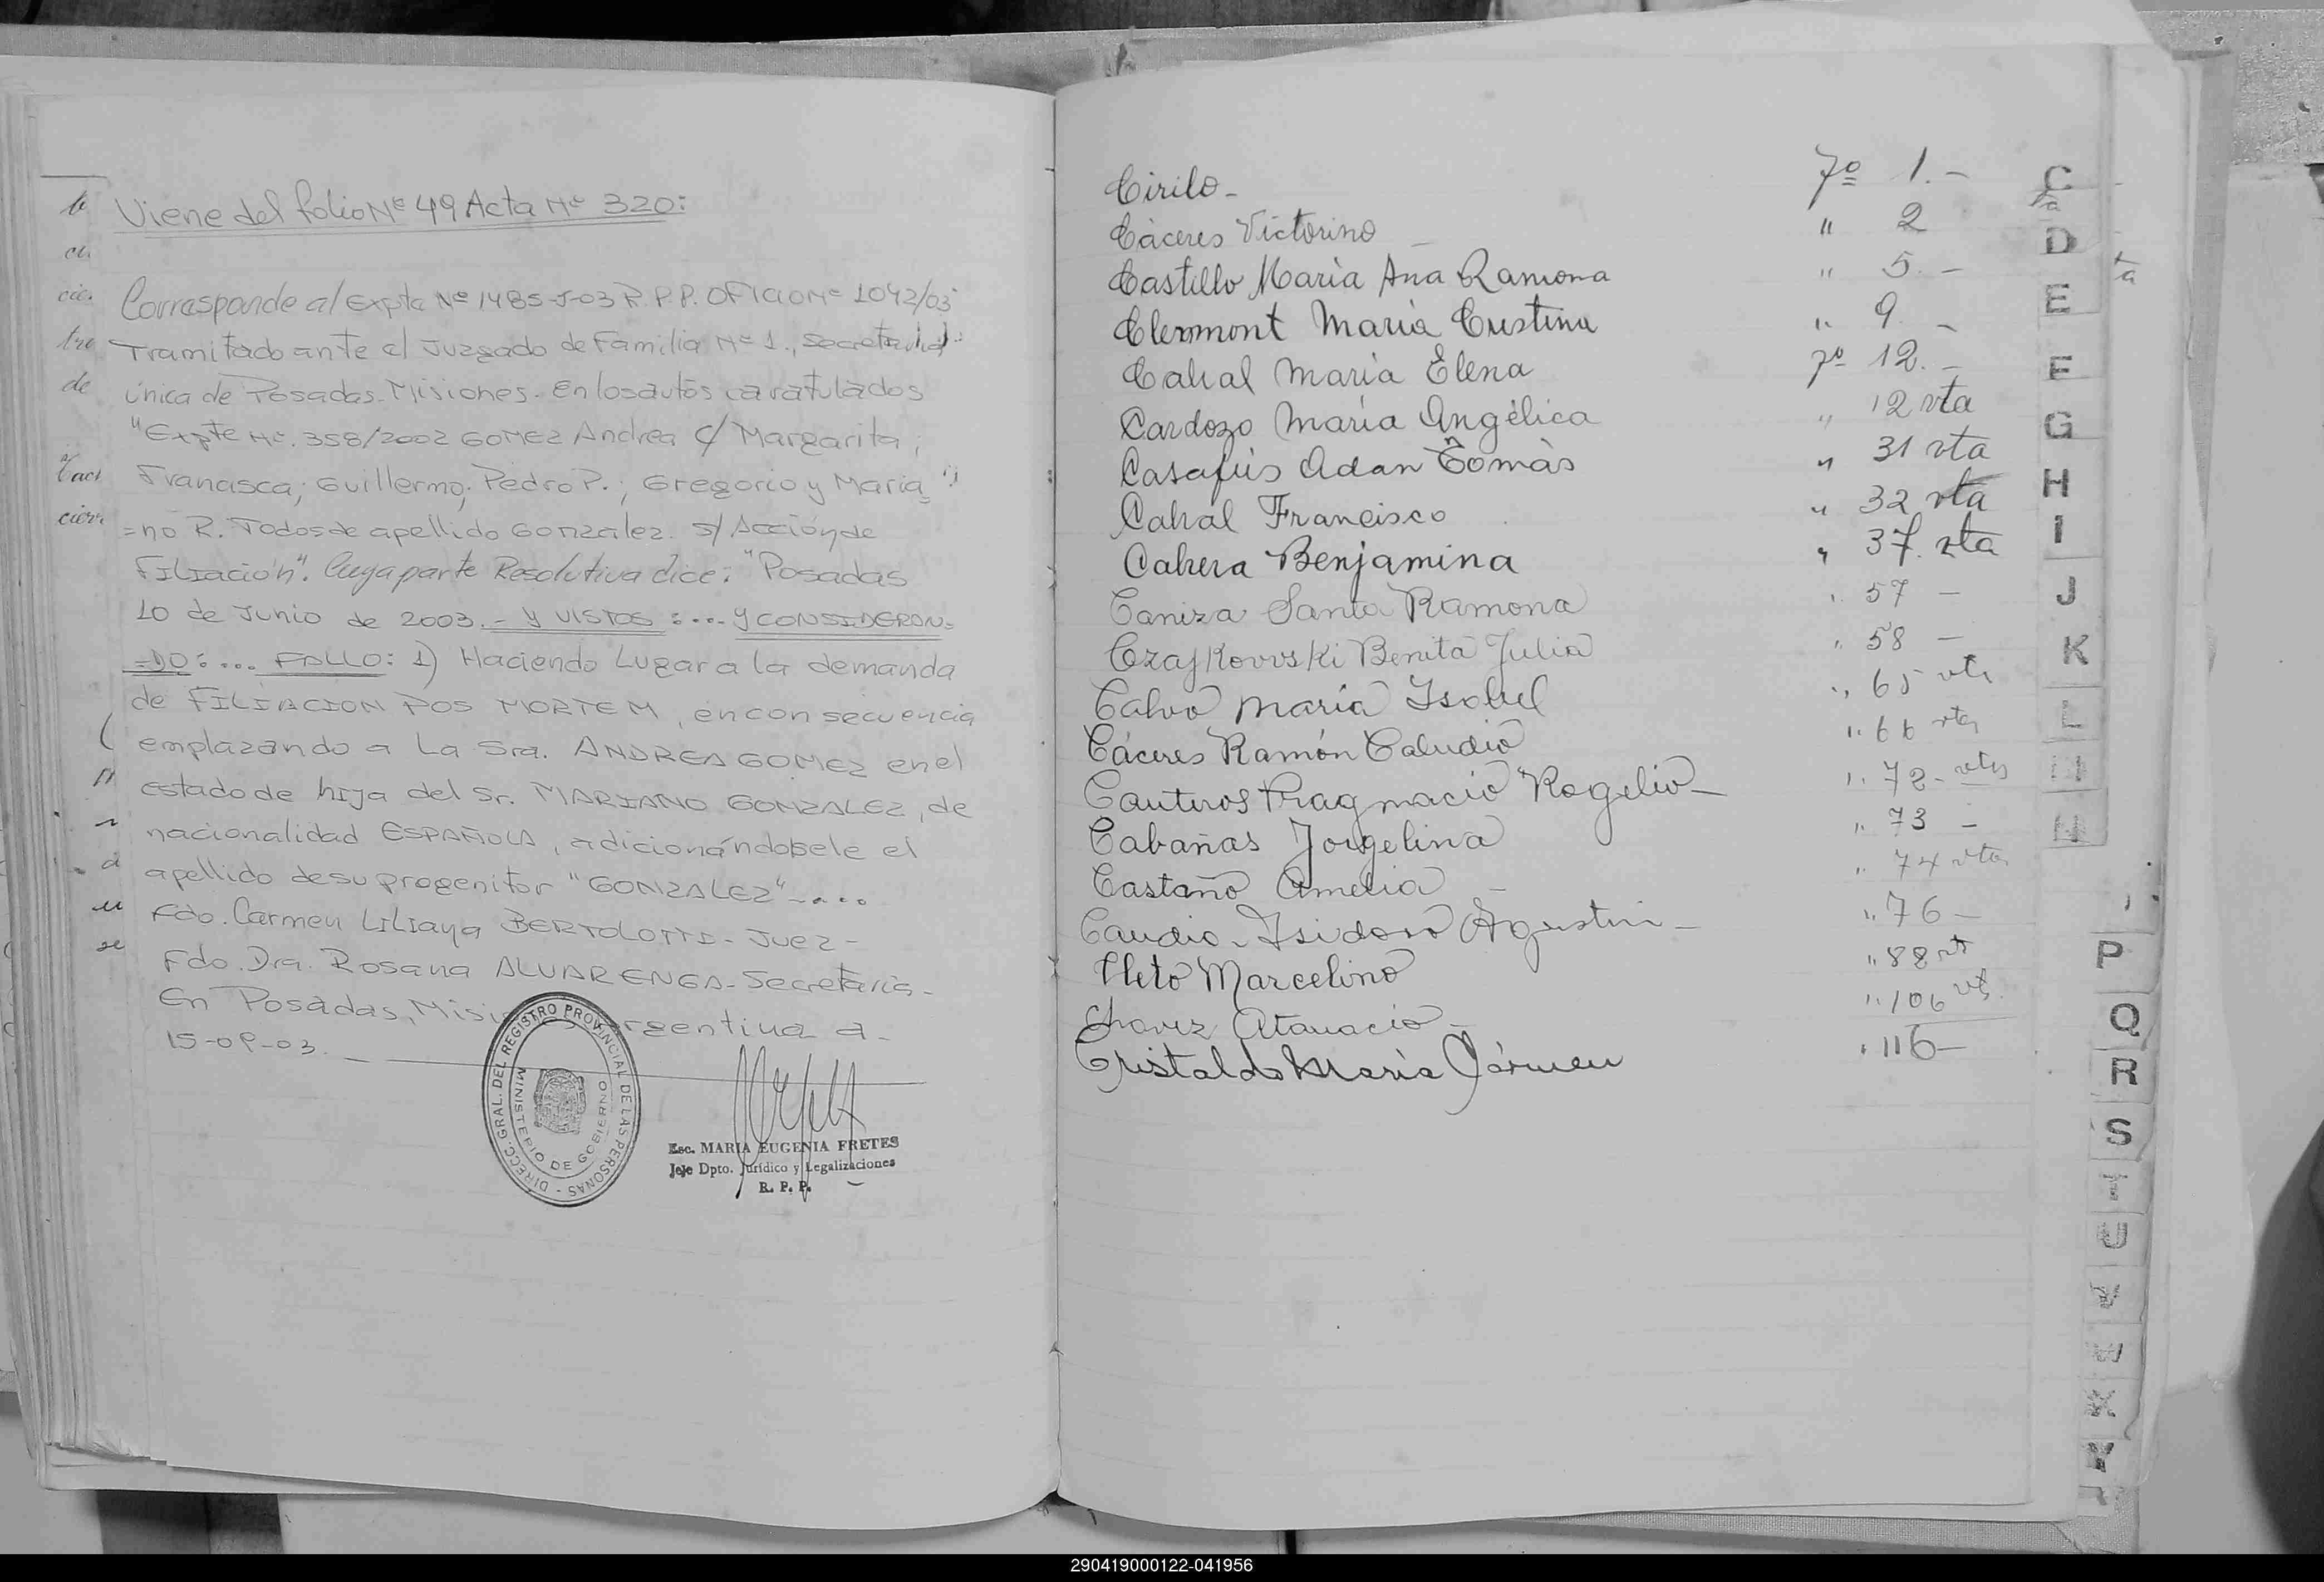 Viene del folio Nº 49 Acta Nº 320:
Corresponde al Expte Nº 1485-J-03 R.P.P. OFICIO Nº 1042/03
Tramitado ante el Juzgado de Familia Nº 1., Secretaria
única de Posadas-Misiones. En los autos caratulados
"Expte Nº. 358/2002 GOMEZ Andrea c/ Margarita;
Francisca; Guillermo; Pedro P.; Gregorio y Maria
=no R. Todos de apellido Gonzalez. s/ Acción de
Filiación". Cuya parte Resolutiva dice: "Posadas
10 de Junio de 2003.- Y VISTOS:... Y CONSIDERAN=
=DO:... FALLO: 1) Haciendo Lugar a la demanda
de FILIACION POS MORTEM, en consecuencia
emplazando a La Sra. ANDREA GOMEZ en el
estado de hija del Sr. MARIANO GONZALEZ, de
nacionalidad ESPAÑOLA, adicionándosele el
apellido de su progenitor "GONZALEZ"-...
Fdo. Carmen Liliana BERTOLOTTI- Juez-
Fdo. Dra. Rosana ALVARENGA- Secretaria-
En Posadas, Misi Argentina a-
15-09-03.
DIRECC. GRAL. DEL REGISTRO PROVINCIAL DE LAS PERSONAS -
MINISTERIO DE GOBIERNO
Esc. MARIA EUGENIA FRETES
Jefe Dpto. Jurídico y Legalizaciones
R. P. P.
Cirilo- 7º 1.-
Cáceres Victorino - " 2
Castillo María Ana Ramona " 5.-
Clermont María Cristina " 9 -
Cabral María Elena 7º 12.-
Cardozo María Angélica " 12 vta
Casafús Adan Tomàs " 31 vta
Cabral Francisco " 32 vta
Cabrera Benjamina " 37. vta
Caniza Santa Ramona " 57 -
Czajkovvski Benita Julia " 58 -
Calvo María Isabel " 65 vta
Cáceres Ramón Caludio " 66 vta
Rogelio- " 72- vta
Cabañas Jorgelina " 73 -
Castaño Amelia - " 74 vta
Isidoro Agustin - " 76-
Cleto Marcelino " 88 vt
Chavez Atanacio- " 106 vt.
Cristaldo María Cármen " 116-
C
D
E
F
G
H
I
J
K
L
M
N
P
Q
R
S
T
U
V
W
X
Y
290419000122-041956